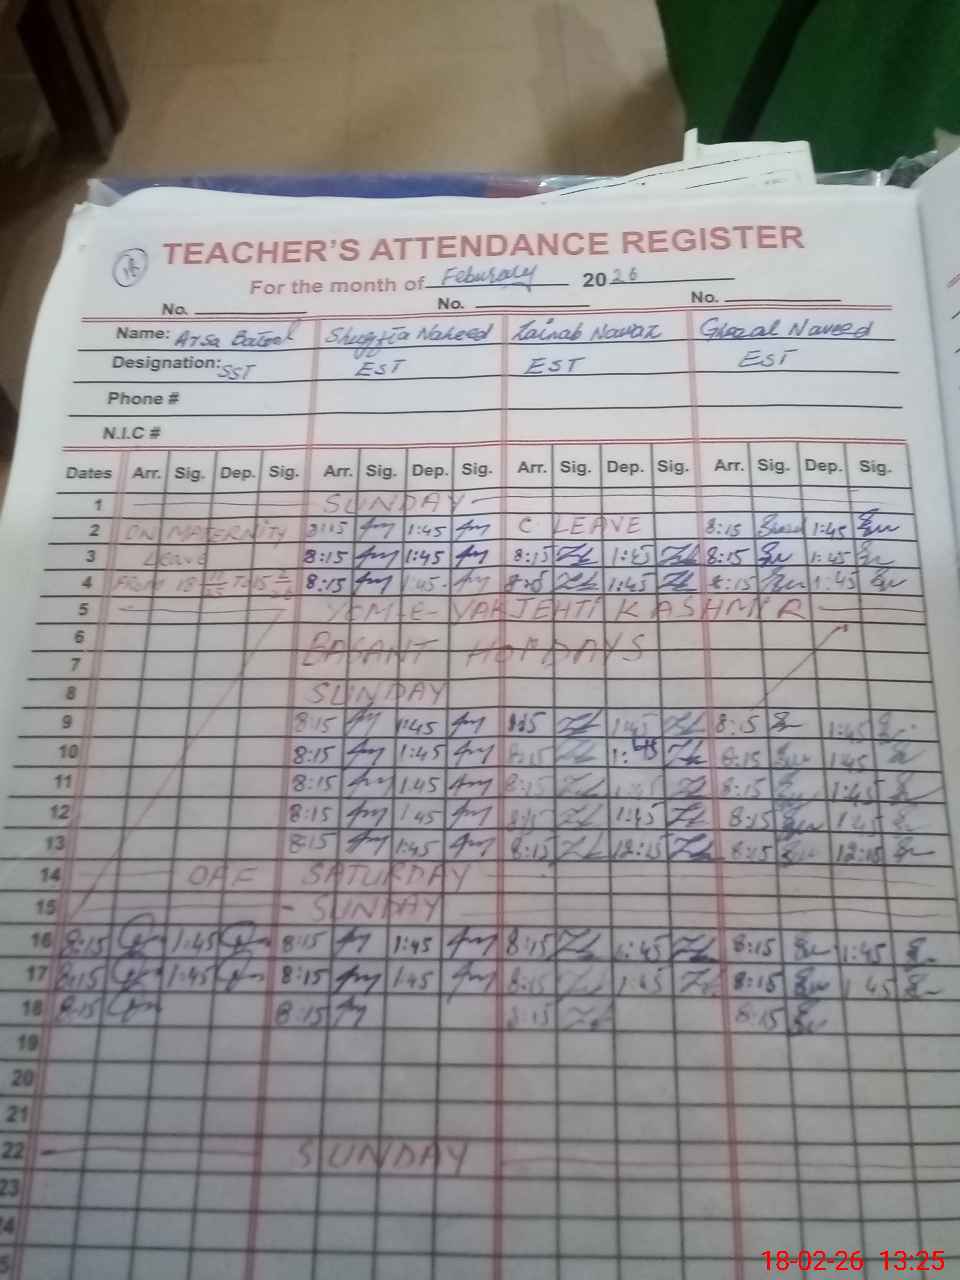 18
TEACHER'S ATTENDANCE REGISTER
For the month of Feburary 2026
No. No. No.
Name: Arsa Batool Shugfta Naheed Zainab Nawaz Ghazal Naveed
Designation: SST EST EST EST
Phone #
N.I.C #
Dates Arr. Sig. Dep. Sig. Arr. Sig. Dep. Sig. Arr. Sig. Dep. Sig. Arr. Sig. Dep. Sig.
1 SUNDAY
2 ON MATERNITY 8:15 1:45 C LEAVE 8:15 1:45
3 Leave 8:15 1:45 8:15 1:45 8:15 1:45
4 FROM 18 TO 15 8:15 1:45 8:15 1:45 8:15 1:45
5 YOM-E- KASHMIR
6 BASANT HOLIDAYS
7
8 SUNDAY
9 8:15 1:45 8:15 1:45 8:15 1:45
10 8:15 1:45 8:15 1:45 8:15 1:45
11 8:15 1:45 8:15 1:45 8:15 1:45
12 8:15 1:45 8:15 1:45 8:15 1:45
13 8:15 1:45 8:15 12:15 8:15 12:15
14 OFF SATURDAY
15 SUNDAY
16 8:15 1:45 8:15 1:45 8:15 1:45 8:15 1:45
17 8:15 1:45 8:15 1:45 8:15 1:45 8:15 1:45
18 8:15 8:15 8:15 8:15
19
20
21
22 SUNDAY
23
24
5
18-02-26 13:25